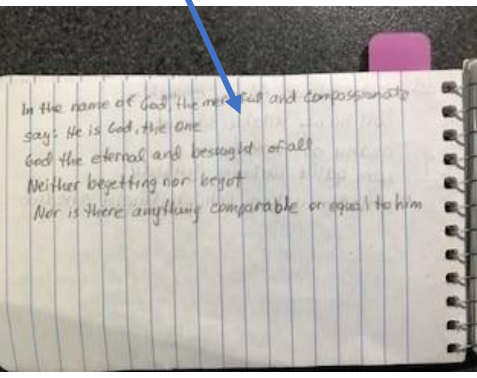 In the name of God, the merciful and compassionate
say: He is God, the One
God the eternal and besought of all
Neither begetting nor begot
Nor is there anything comparable or equal to him